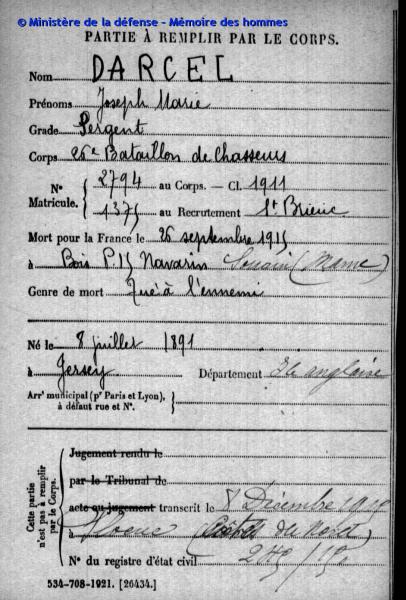 © Ministère de la défense - Mémoire des hommes
PARTIE À REMPLIR PAR LE CORPS.
Nom DARCEL
Prénoms Joseph Marie
Grade Sergent
Corps 26e Bataillon de Chasseurs
N° Matricule. { 2794 au Corps. — Cl. 1911
1375 au Recrutement St Brieuc
Mort pour la France le 26 septembre 1915
à Bois P.15 Navarin Souain (Marne)
Genre de mort Tué à l'ennemi
Né le 8 juillet 1891
à Jersey Département Ile anglaise
Arrt municipal (pr Paris et Lyon), à défaut rue et N°.
Cette partie n'est pas à remplir par le Corps.
Jugement rendu le
par le Tribunal de
acte ou jugement transcrit le 8 Décembre
à (Côtes du Nord)
N° du registre d'état civil
534-708-1921. [26434.]